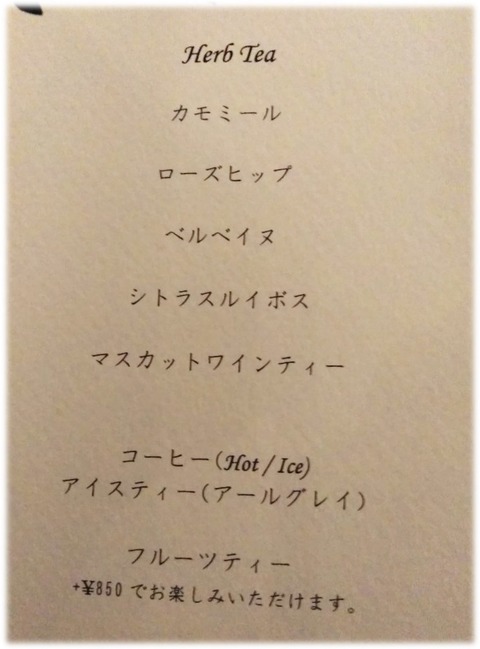 Herb Tea
カモミール
ローズヒップ
ベルベイヌ
シトラスルイボス
マスカットワインティー
コーヒー(Hot / Ice)
アイスティー(アールグレイ)
フルーツティー
+¥850でお楽しみいただけます。